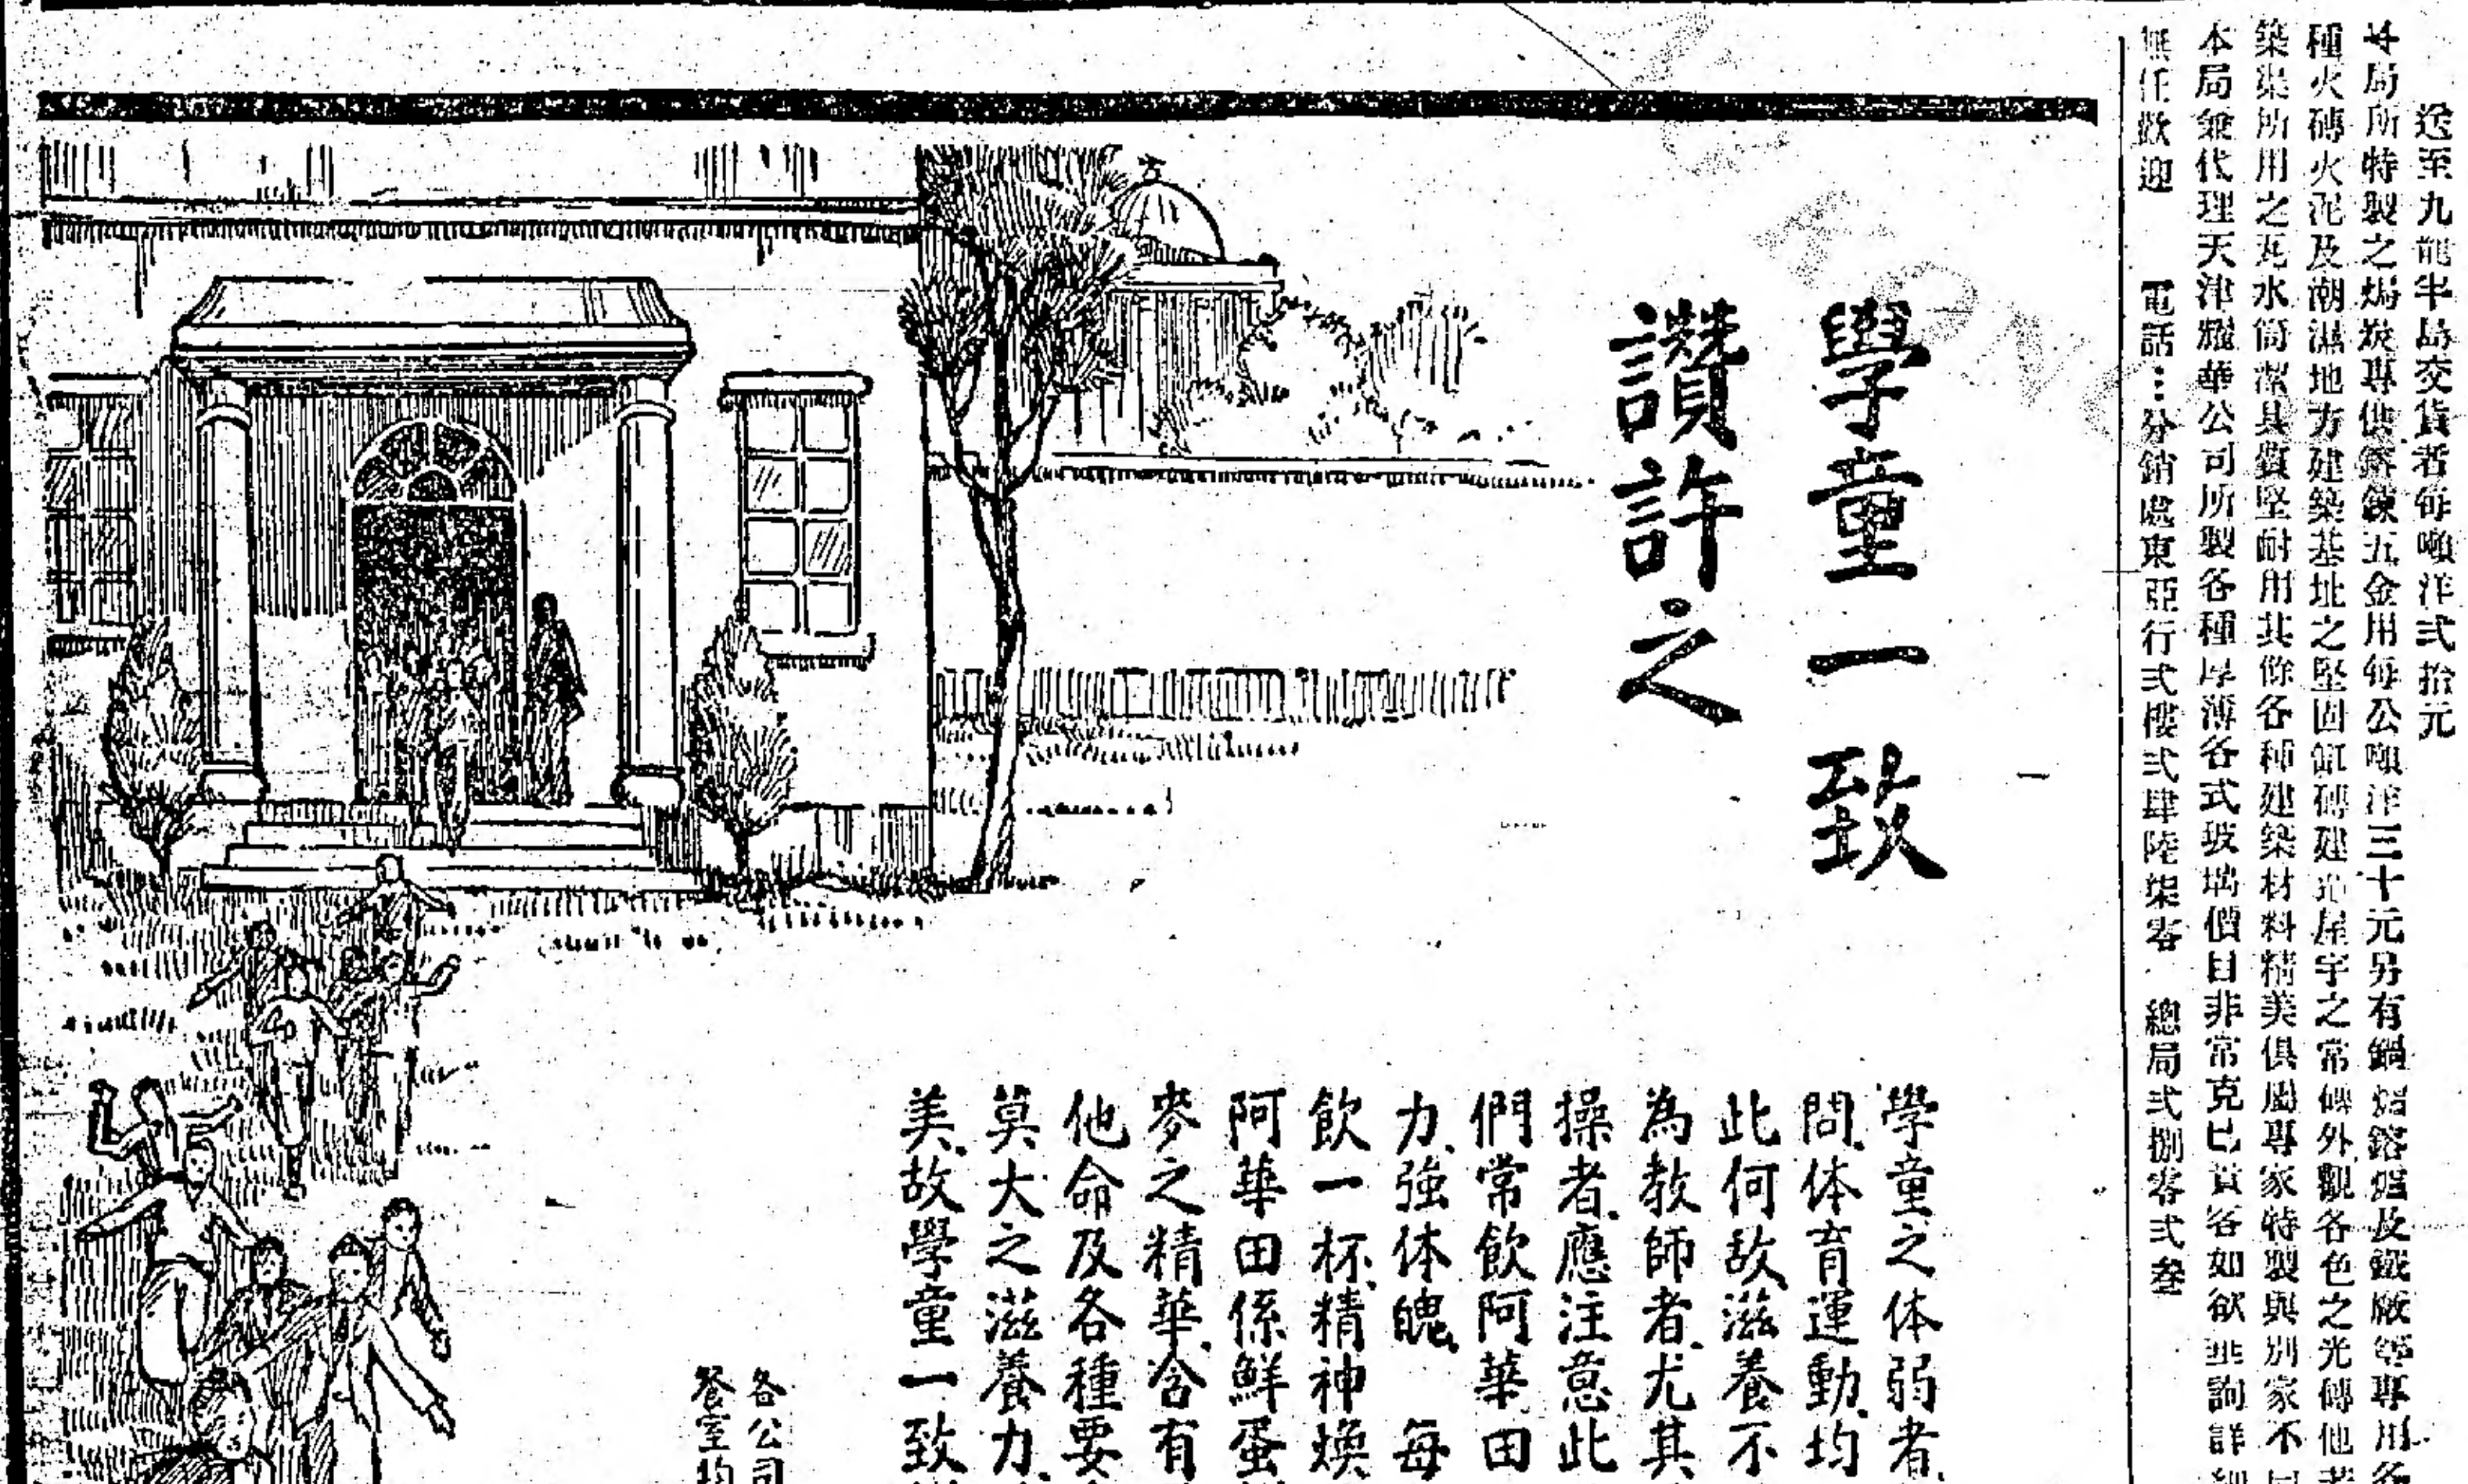 送至九龍半島交貨者每噸洋弍拾元
局所特製之焗炭專供鎔鍊五金用每公噸洋三十元另有鍋爐鎔爐及鐵廠等專用各
種火磚火泥及潮濕地方建築基址之堅固缸磚建造屋宇之常磚外觀各色之光磚他
築渠所用之瓦水筒潔具質堅耐用其餘各種建築材料精美俱屬專家特製與別家不同
本局兼代理天津耀華公司所製各種厚薄各式玻璃價目非常克己貴客如欲垂詢詳細
無任歡迎 電話：分銷處東亞行弍樓弍肆陸柒零 總局弍捌零弍叁
學童一致
讚許之
學童之体弱者、
問、体育運動、均
此何故、滋養不
為教師者、尤其
操者、應注意此
們常飲阿華田
力、強体魄、每
飲一杯、精神煥
阿華田係鮮蛋
麥之精華、含有
他命及各種要
莫大之滋養力、
美、故學童一致
各公司
餐室均